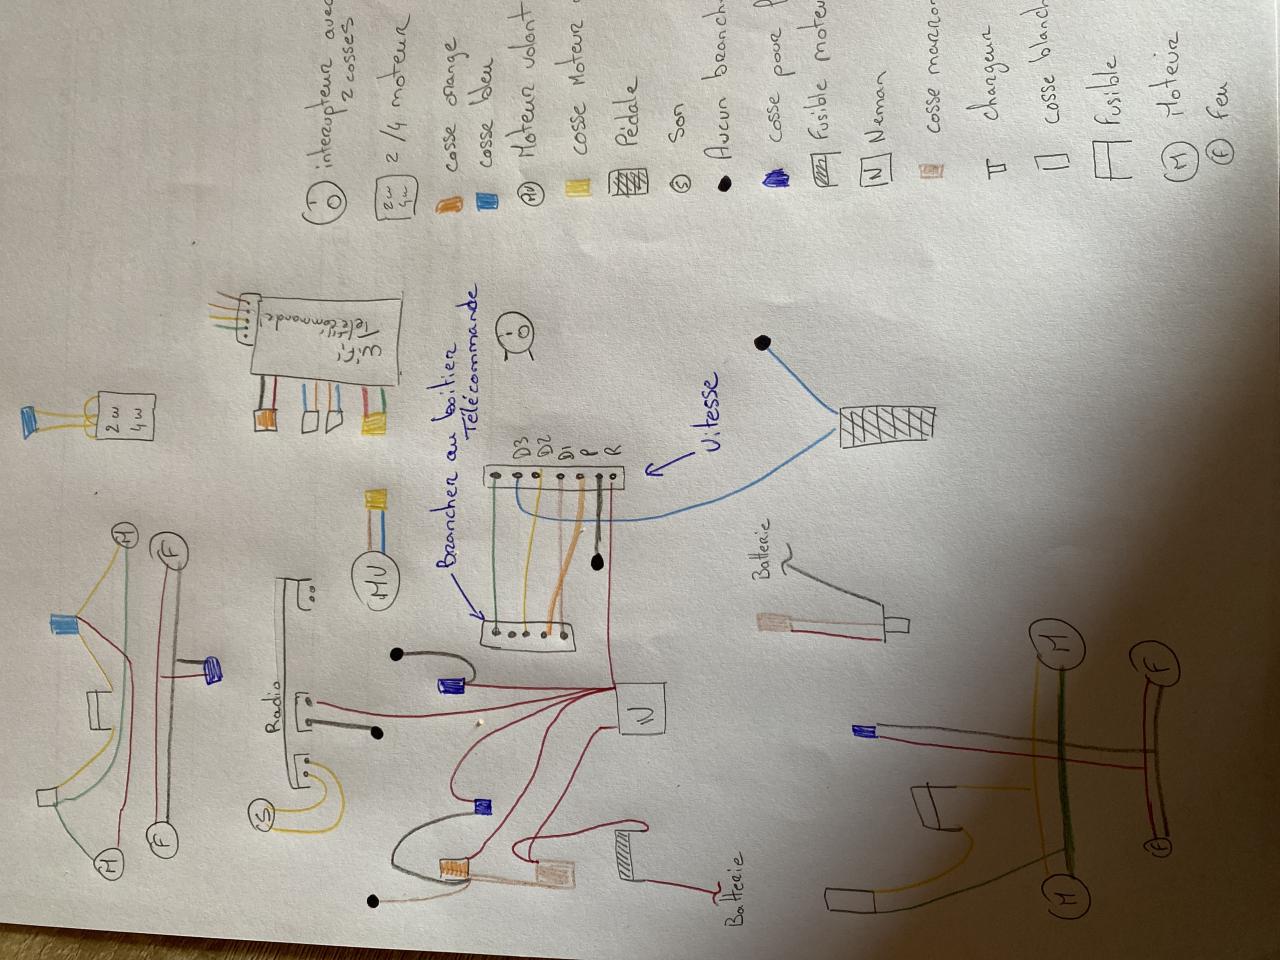 interrupteur avec
2 cosses
2w
4w
2/4 moteur
cosse orange
cosse bleu
MV
Moteur volant
cosse Moteur
Pédale
S
Son
Aucun branch
cosse pour
Fusible moteu
N
Neman
cosse marron
chargeur
cosse blanch
Fusible
M
Moteur
F
Feu
2w
4w
Wifi
Télécommande
Brancher au boîtier
Télécommande
D3
D2
D1
P
R
Vitesse
M
F
MV
Radio
S
M
F
N
Batterie
Batterie
M
F
M
F